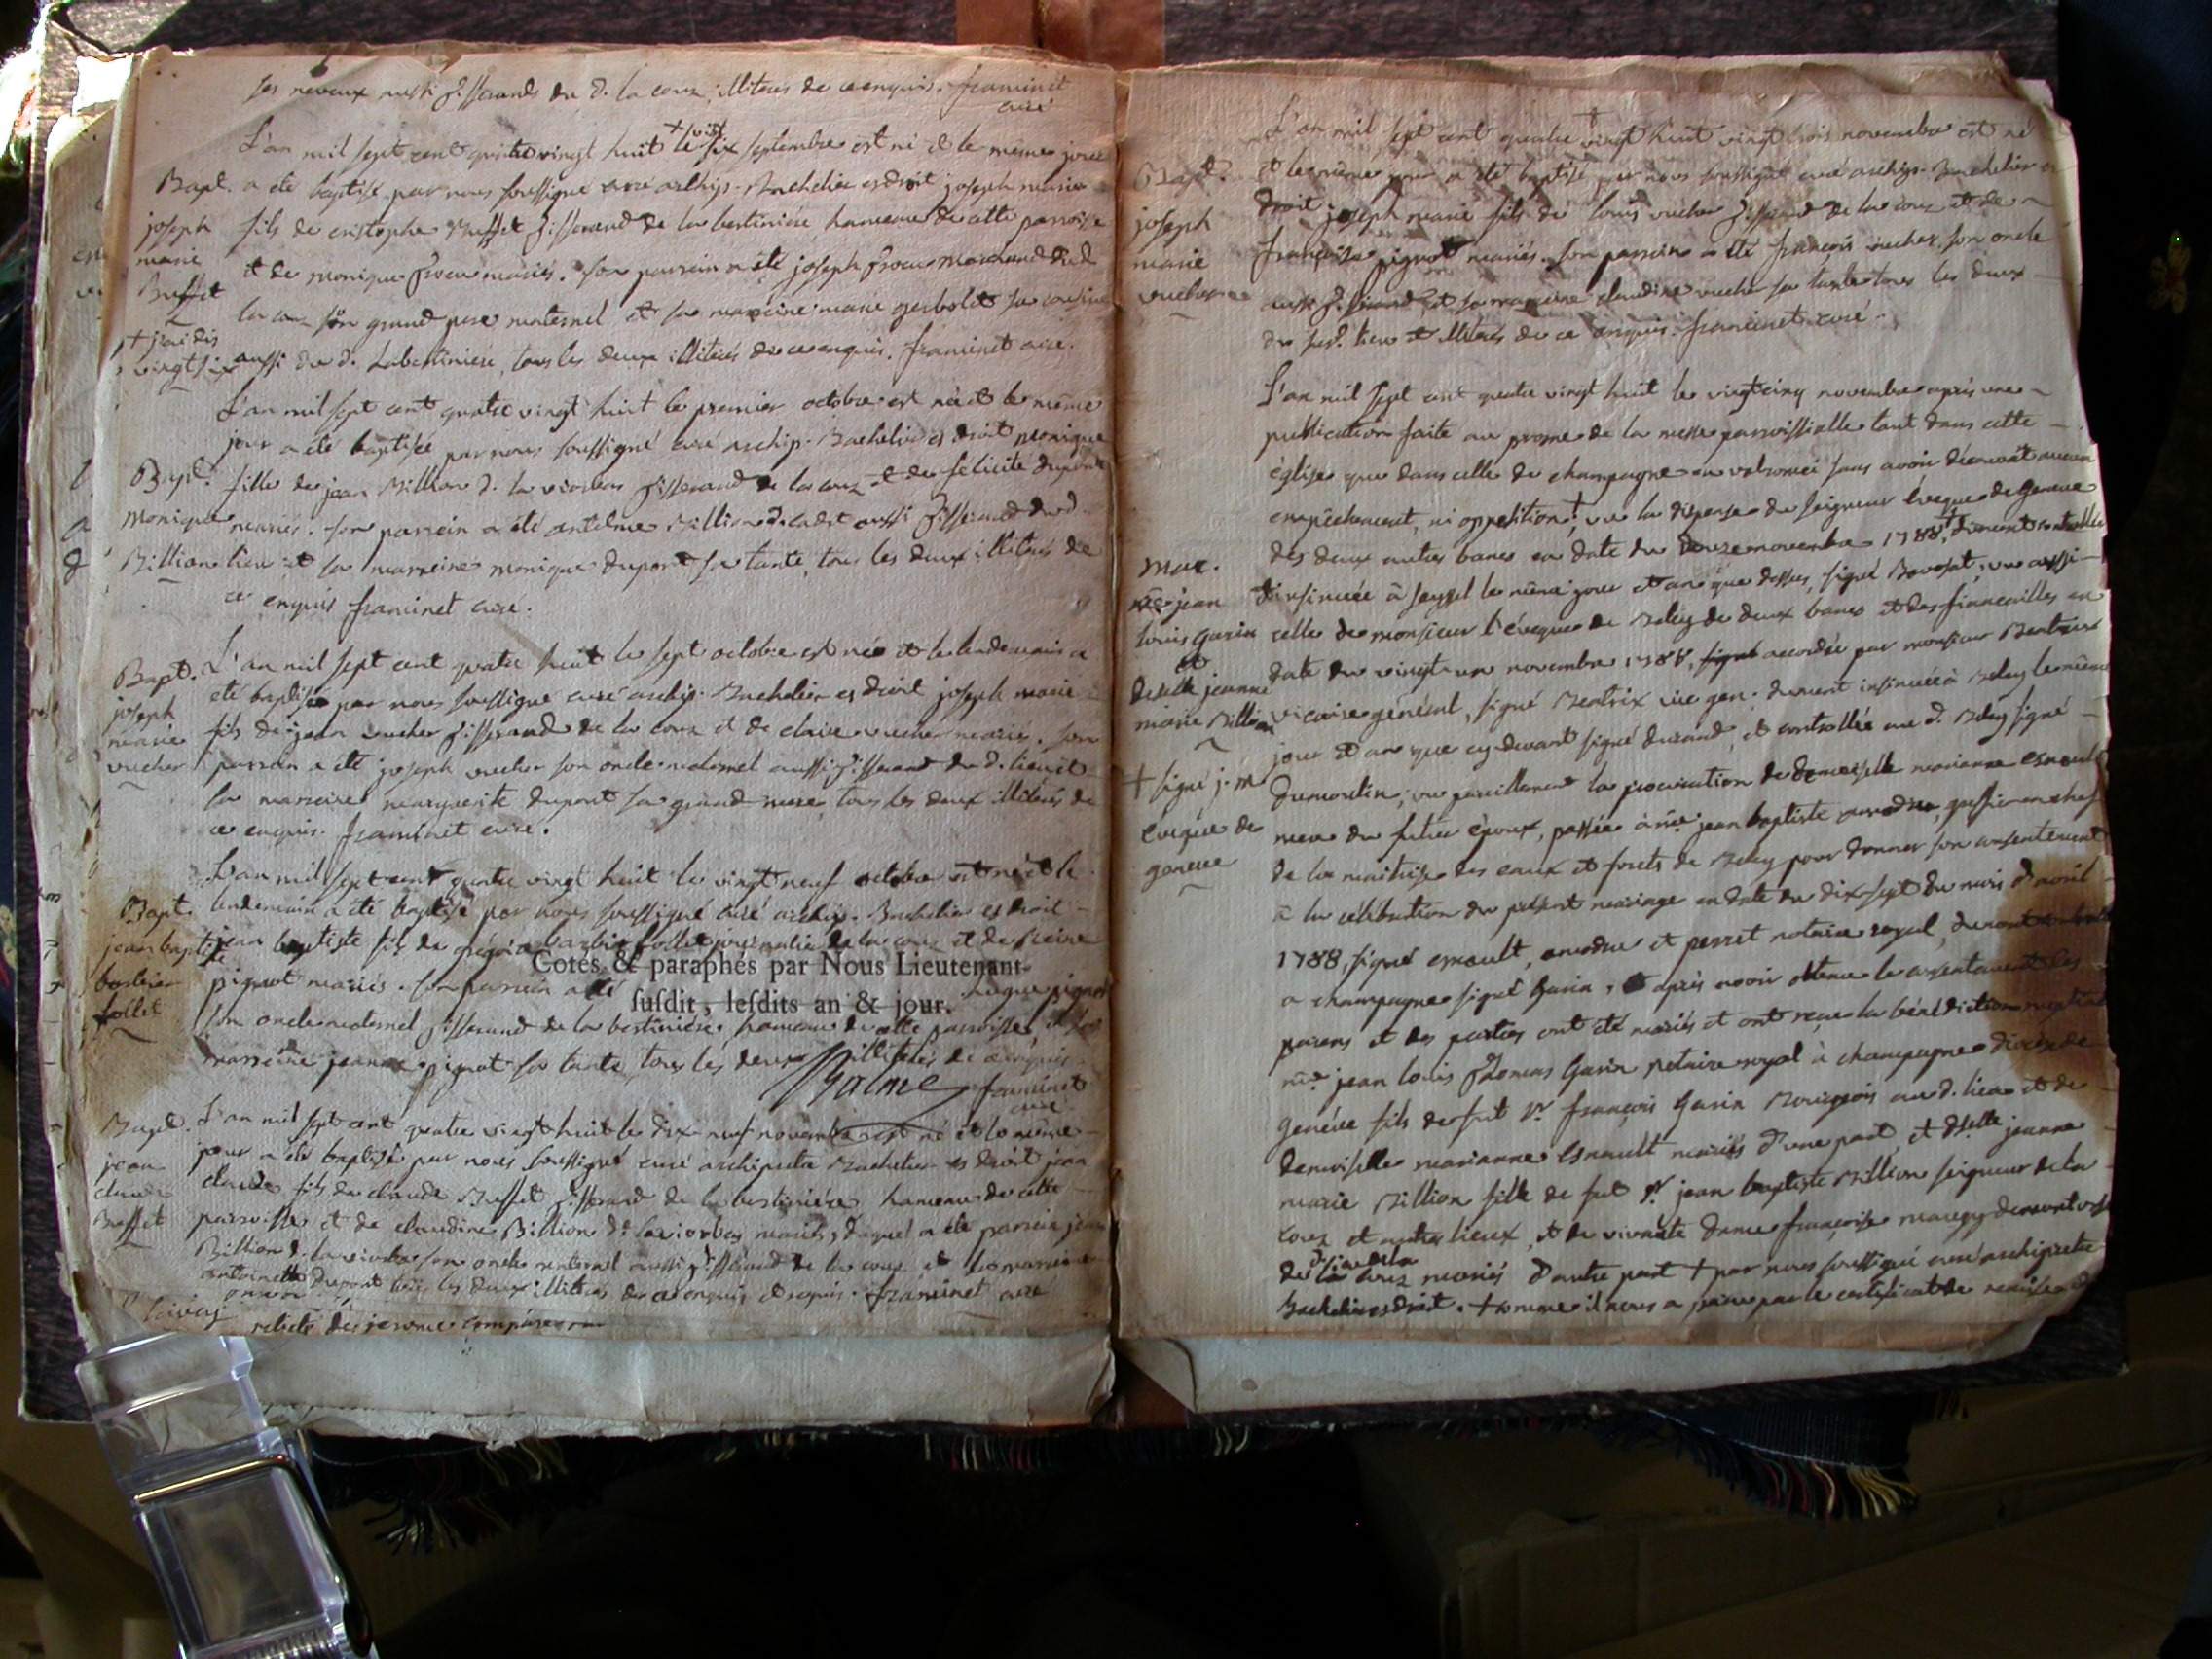 ses neveux aussi tisserands du d. la couz, illiterés de ce enquis. framinet
curé
L'an mil sept cent quatre vingt huit le + vingt six septembre est né et le même jour
Bapt. a été baptisé par nous soussigné curé archip. Bachelier es droit joseph marie
joseph fils de cristophe Buffet tisserand de la bertinière hameau de cette parroisse
marie et de monique mariés. son parrain a été joseph marchand du d.
Buffet la couz son grand pere maternel et sa marreine marie gerbolet sa cousine
+ j'ai dis
vingt six aussi du d. Labertiniere, tous les deux illiterés de ce enquis. framinet curé.
L'an mil sept cent quatre vingt huit le premier octobre est née et le même
jour a été baptisée par nous soussigné curé archip. Bachelier es droit monique
Bapt. fille de jean Billion d. la viorbas tisserand de la couz et de félicité dupont
monique mariés. son parrain a été antelme Billion aussi tisserand du d.
Billion lieu et sa marreine monique dupont sa tante, tous les deux illiterés de
ce enquis framinet curé.
Bapt. L'an mil sept cent quatre huit le sept octobre est née et le lendemain a
joseph été baptisé par nous soussigné curé archip. Bachelier es droit joseph marie
marie fils de jean vucher tisserand de la couz et de claire vucher mariés. son
vucher parrain a été joseph vucher son oncle maternel aussi tisserant du d. lieu et
sa marreine marguerite dupont sa grand mere, tous les deux illiterés de
ce enquis. framinet curé.
L'an mil sept cent quatre vingt huit le vingt neuf octobre est né et le
Bapt. lendemain a été baptisé par nous soussigné curé archip. Bachelier es droit
jean baptiste jean baptiste fils de grégoire barbier follet journalier de la couz et de
barbier pignot mariés. son parrain a été hugue pignot
follet son oncle maternel tisserand de la bertinière hameau de cette parroisse, et sa
Cotés & paraphés par Nous Lieutenant
suſdit, leſdits an & jour.
marreine jeanne pignot sa tante, tous les deux illiterés de ce enquis
framinet
curé
Bapt. L'an mil sept cent quatre vingt huit le dix neuf novembre est né et le même
jean jour a été baptisé par nous soussigné curé archipretre Bachelier es droit jean
claude claude fils de claude Buffet tisserand de la bertinière hameau de cette
Buffet parroisse et de claudine Billion d. la viorbas mariés, duquel a été parrain jean
Billion d. la viorbas son oncle maternel aussi tisserand de la couz et la marreine
antoinette dupont tous les deux illiterés de ce enquis et requis. framinet curé
L'an mil sept cent quatre vingt huit vingt trois novembre est né
Bapt. et le même jour a été baptisé par nous soussigné curé archip. Bachelier es
joseph droit joseph marie fils de louis vucher tisserand de la couz et de
marie françoise pignot mariés. son parrain a été françois vucher son oncle
vucher aussi tisserand et sa marreine claudine vucher sa tante tous les deux
du susd. lieu et illiterés de ce enquis. framinet curé.
L'an mil sept cent quatre vingt huit le vingt cinq novembre après une
publication faite au prosne de la messe parroissialle tant dans cette
église que dans celle de champagne en valromei sans avoir découvert aucun
empêchement, ni oppositions, vu la dispense du seigneur évêque de Geneve
Mar. des deux autres bancs en date du douze novembre 1788, + dûment controllée
mc. jean et insinuée à seyssel le même jour et an que dessus, signé Bovosat, vu aussi
louis Garin celle de monsieur l'évêque de Beley de deux bancs et des fiançailles en
et date du vingt un novembre 1788, signé accordée par monsieur Beatrix
delle jeanne
marie Billion vicaire général, signé Beatrix vic. gen. dument insinuée à Beley le même
jour et an que cy devant signé durand, et controllée au d. Beley signé
+ signé j. m. Dumoulin, vu pareillement la procuration de demoiselle marianne Esnault
évêque de mere du futur époux, passée à mc. jean baptiste greffier en chef
geneve de la maitrise des eaux et forets de Beley pour donner son consentement
à la célébration du présent mariage en date du dix sept du mois d'avril
1788, signé esnault, et perret notaire royal, dument
a champagne signé Garin, et après avoir obtenu le consentement des
parens et des parties ont été mariés et ont reçu la bénédiction nuptiale
mc. jean louis Thomas Garin notaire royal à champagne diocèse de
genéve fils de fut sr. françois Garin Bourgeois au d. lieu et de
demoiselle marianne Esnault mariés d'une part, et delle jeanne
marie Billion fille de fut sr. jean baptiste Billion seigneur de la
couz et autres lieux, et de vivante dame françoise
de la couz mariés d'autre part + par nous soussigné curé archipretre
Bachelier es droit. + comme il nous a parus par le certificat de remise